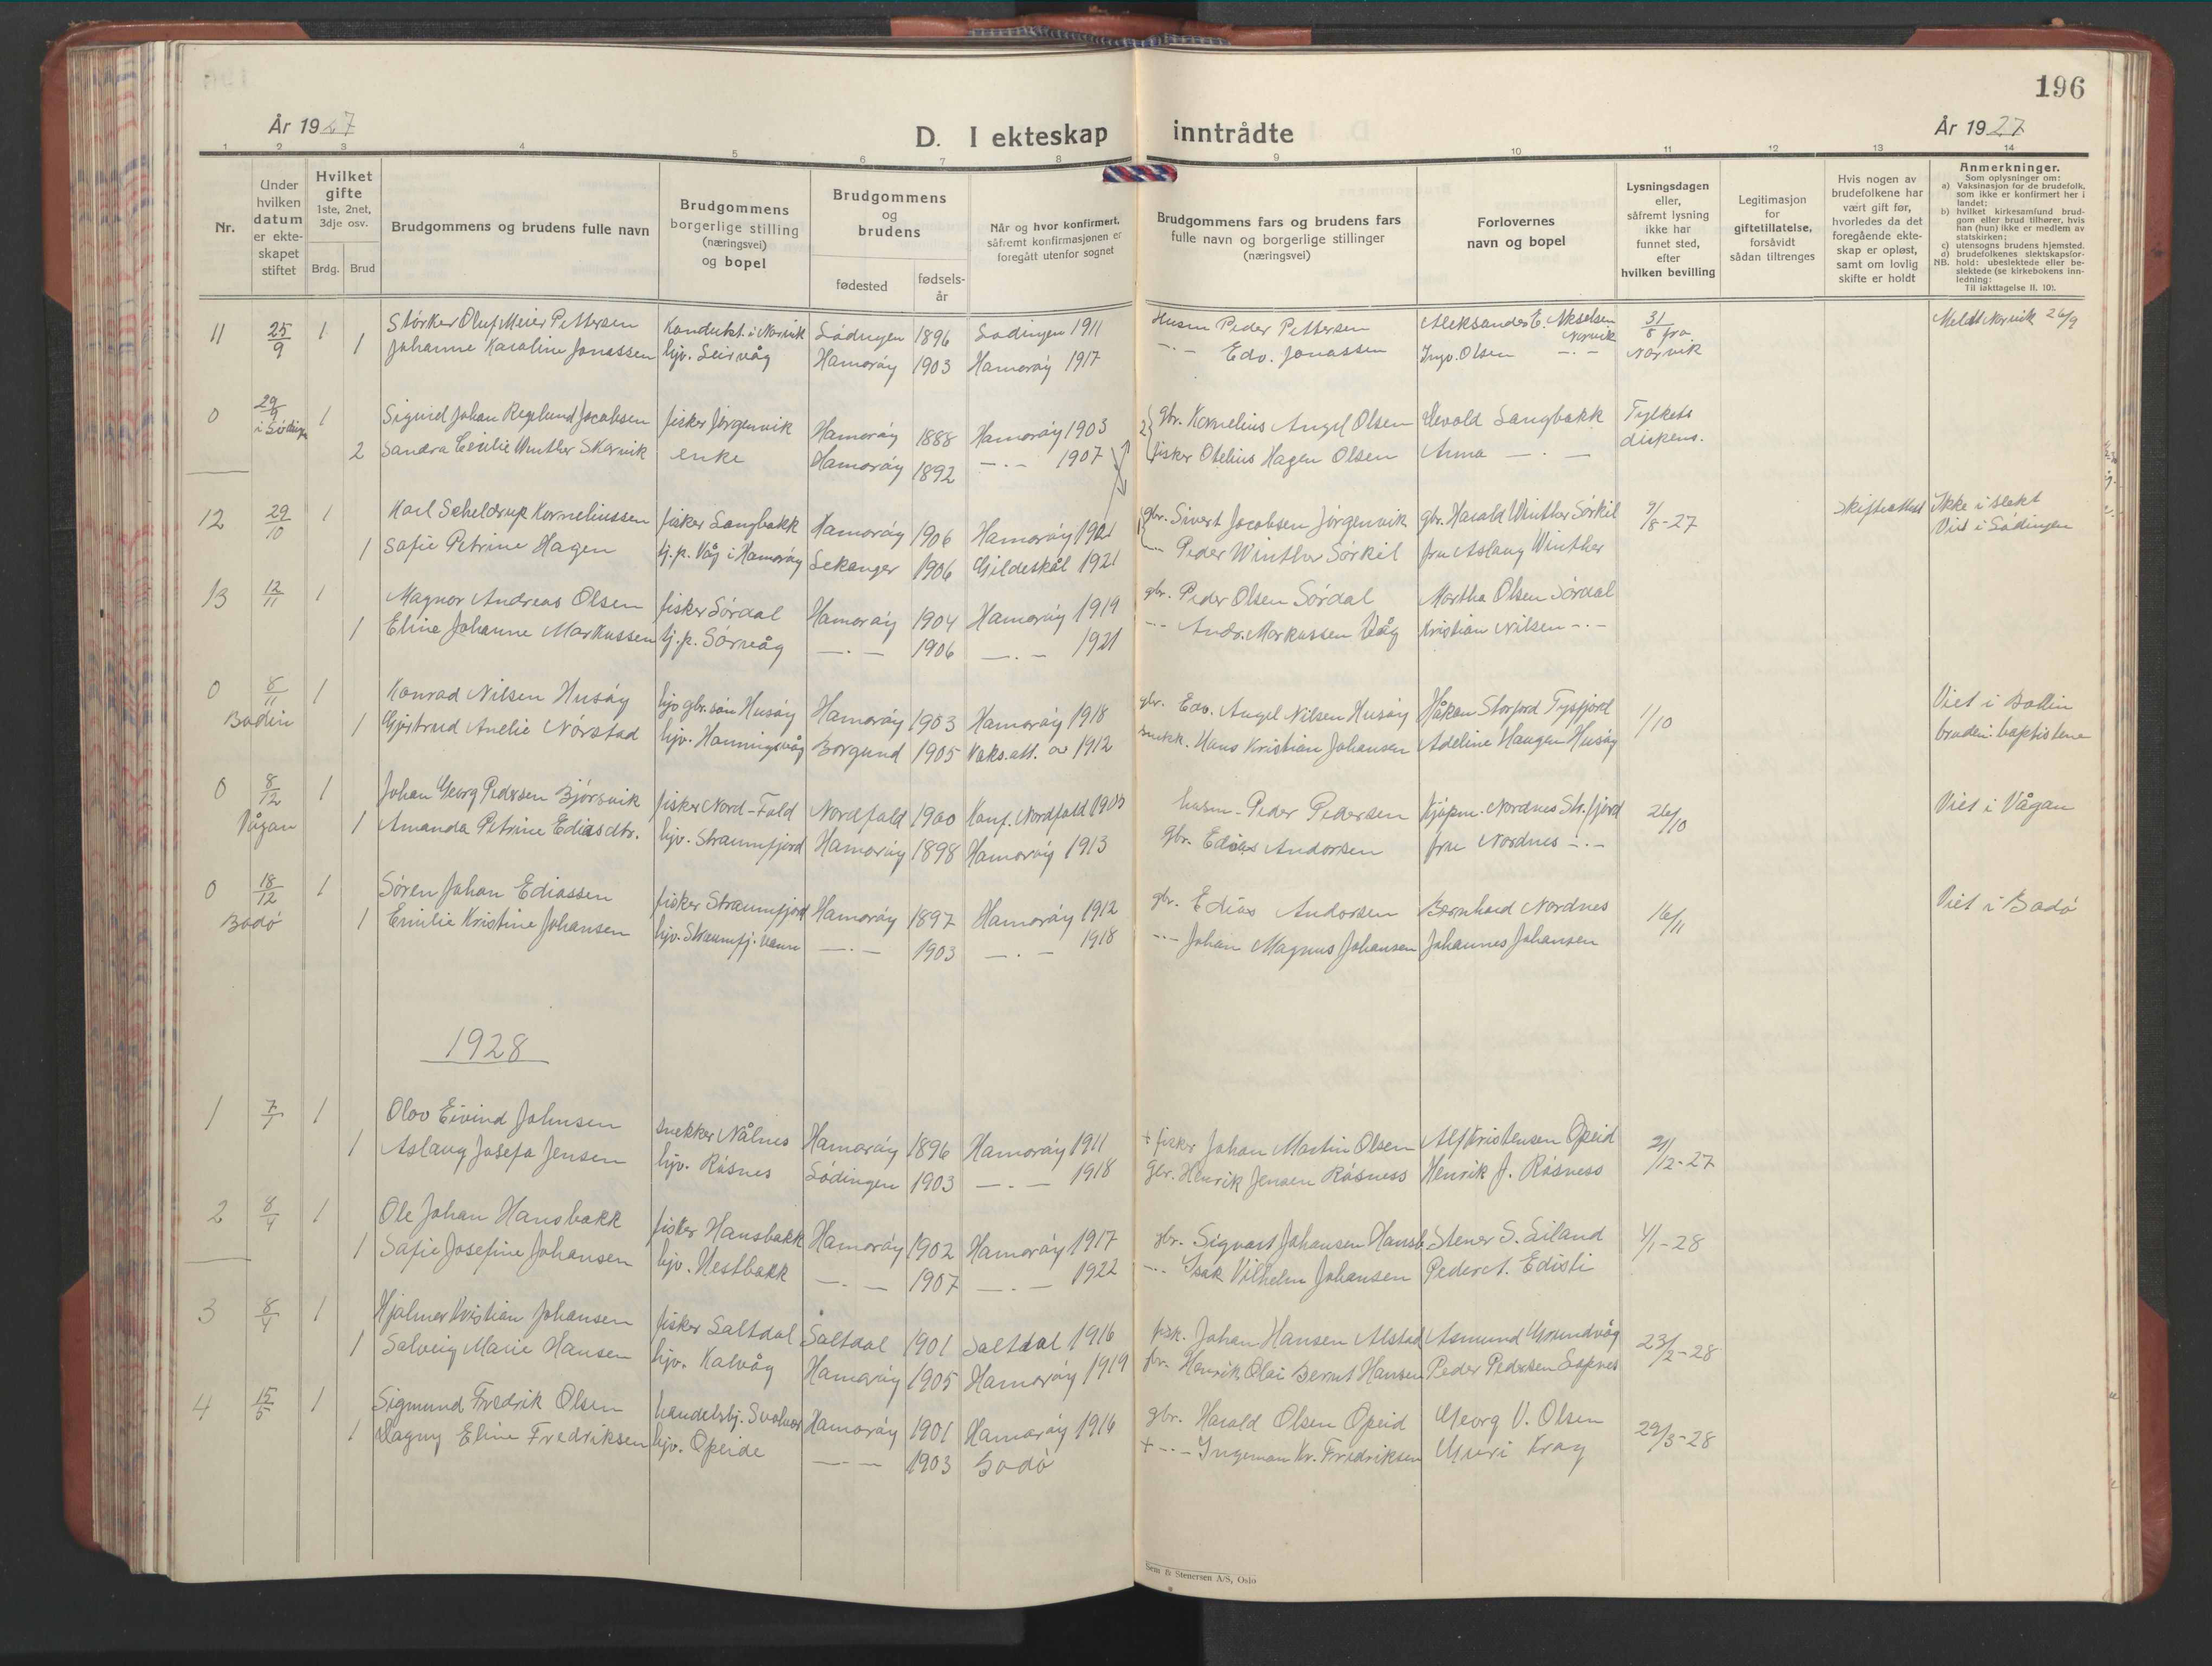 196
År 1927
D. I ekteskap inntrådte
År 1927
1 2 3 4 5 6 7 8 9 10 11 12 13 14
Nr.
Under hvilken datum er ekteskapet stiftet
Hvilket gifte 1ste, 2net, 3dje osv.
Brdg. Brud
Brudgommens og brudens fulle navn
Brudgommens borgerlige stilling (næringsvei) og bopel
Brudgommens og brudens
fødested
fødselsår
Når og hvor konfirmert, såfremt konfirmasjonen er foregått utenfor sognet
Brudgommens fars og brudens fars fulle navn og borgerlige stillinger (næringsvei)
Forlovernes navn og bopel
Lysningsdagen eller, såfremt lysning ikke har funnet sted, efter hvilken bevilling
Legitimasjon for giftetillatelse, forsåvidt sådan tiltrenges
Hvis nogen av brudefolkene har vært gift før, hvorledes da det foregående ekteskap er opløst, samt om lovlig skifte er holdt
Anmerkninger.
Som oplysninger om:
a) Vaksinasjon for de brudefolk, som ikke er konfirmert her i landet;
b) hvilket kirkesamfund brudgom eller brud tilhører, hvis han (hun) ikke er medlem av statskirken;
c) utensogns brudens hjemsted.
d) brudefolkenes slektskapsforhold: ubeslektede eller beslektede (se kirkebokens innledning:
NB. Til iakttagelse II. 10).
11 25/9 1 Størker Oluf Meier Pettersen Kondukt. i Narvik Lødingen 1896 Lødingen 1911 Husm Peder Pettersen Aleksander E. Akselsen Narvik 31/8 fra Narvik Meldt Narvik 26/9
1 Johanne Karoline Jonassen hjv. Leirvåg Hamarøy 1903 Hamarøy 1917 -·- Edv. Jonassen Ingv. Olsen -·-
0 29/9 i Lødingen 1 Sigvid Johan Jacobsen fisker Jørgenvik Hamarøy 1888 Hamarøy 1903 2 gbr. Kornelius Angel Olsen Sevald Langbakk Fylkets dispens.
2 Sandra Cecilie Winther Skarvik enke Hamarøy 1892 -·- 1907 fisker Otelius Hagen Olsen Anna -·-
12 29/10 1 Karl Scheldrup Korneliussen fisker Langbakk Hamarøy 1906 Hamarøy 1921 1 gbr. Sivert Jacobsen Jørgenvik gbr. Harald Winther Sørkil 9/8-27 Skifteattest Ikke i slekt
1 Sofie Petrine Hagen tj.p. Våg i Hamarøy Lekanger 1906 Gildeskål 1921 -·- Peder Winther Sørkil fru Aslaug Winther Viet i Lødingen
13 12/11 1 Magnor Andreas Olsen fisker Sørdal Hamarøy 1904 Hamarøy 1919 gbr. Peder Olsen Sørdal Martha Olsen Sørdal
1 Eline Johanne Markussen tj.p. Sørvåg -·- 1906 -·- 1921 -·- Andr. Markussen Våg Kristian Nilsen -·-
0 8/11 1 Konrad Nilsen Husøy hjv gbr. søn Husøy Hamarøy 1903 Hamarøy 1918 gbr. Edv. Angel Nilsen Husøy Håkon Storjord Tysfjord 1/10 Viet i Bodin
Bodin 1 Gjertrud Anelie Nørstad hjv. Honningsvåg Borgund 1905 Vaks.att. av 1912 snekk. Hans Kristian Johansen Adeline Haugen Husøy bruden baptistene
0 8/12 1 Johan Georg Pedersen Bjørsvik fisker Nord-Fold Nordfold 1900 Konf. Nordfold husm. Peder Pedersen Kjøpm. Nordnes Str.fjord 26/10 Viet i Vågan
Vågan 1 Amanda Petrine Ediasdtr. hjv. Straumfjord Hamarøy 1898 Hamarøy 1913 gbr. Edias Andorsen fru Nordnes -·-
0 18/12 1 Søren Johan Ediassen fisker Straumfjord Hamarøy 1897 Hamarøy 1912 gbr. Edias Andorsen Bernhard Nordnes 16/11 Viet i Bodø
Bodø 1 Emilie Kristine Johansen hjv. Straumfj. vann -·- 1903 -·- 1918 -·- Johan Magnus Johansen Johannes Johansen
1928
1 7/1 1 Olav Eivind Johnsen snekker Nålnes Hamarøy 1896 Hamarøy 1911 + fisker Johan Martin Olsen Alf Kristensen Opeid /12-27
1 Aslaug Josefa Jensen hjv. Råsnes Lødingen 1903 -·- 1918 gbr. Henrik Jensen Råsness Henrik J. Råsness
2 8/4 1 Ole Johan Hansbakk fisker Hansbakk Hamarøy 1902 Hamarøy 1917 gbr. Sigvart Johansen Hansb Stener S. Eiland 4/1-28
1 Sofie Josefine Johansen hjv. Nestbakk -·- 1907 -·- 1922 -·- Isak Vilhelm Johansen Peder
3 8/4 1 Hjalmer Kristian Johansen fisker Saltdal Saltdal 1901 Saltdal 1916 fisk. Johan Hansen Alstad Asmund Grundvåg 23/2-28
1 Solveig Marie Hansen hjv. Kalvåg Hamarøy 1905 Hamarøy 1919 gbr. Henrik Olai Bernt Hansen Peder Pedersen Espnes
4 15/5 1 Sigmund Fredrik Olsen handelsbj. Svolvær Hamarøy 1901 Hamarøy 1916 gbr. Harald Olsen Opeid Georg V. Olsen 29/3-28
1 Dagny Eline Fredriksen hjv. Opeide -·- 1903 Bodø + -·- Ingeman Kr. Fredriksen Guri Kray
Sem & Stenersen A/S, Oslo